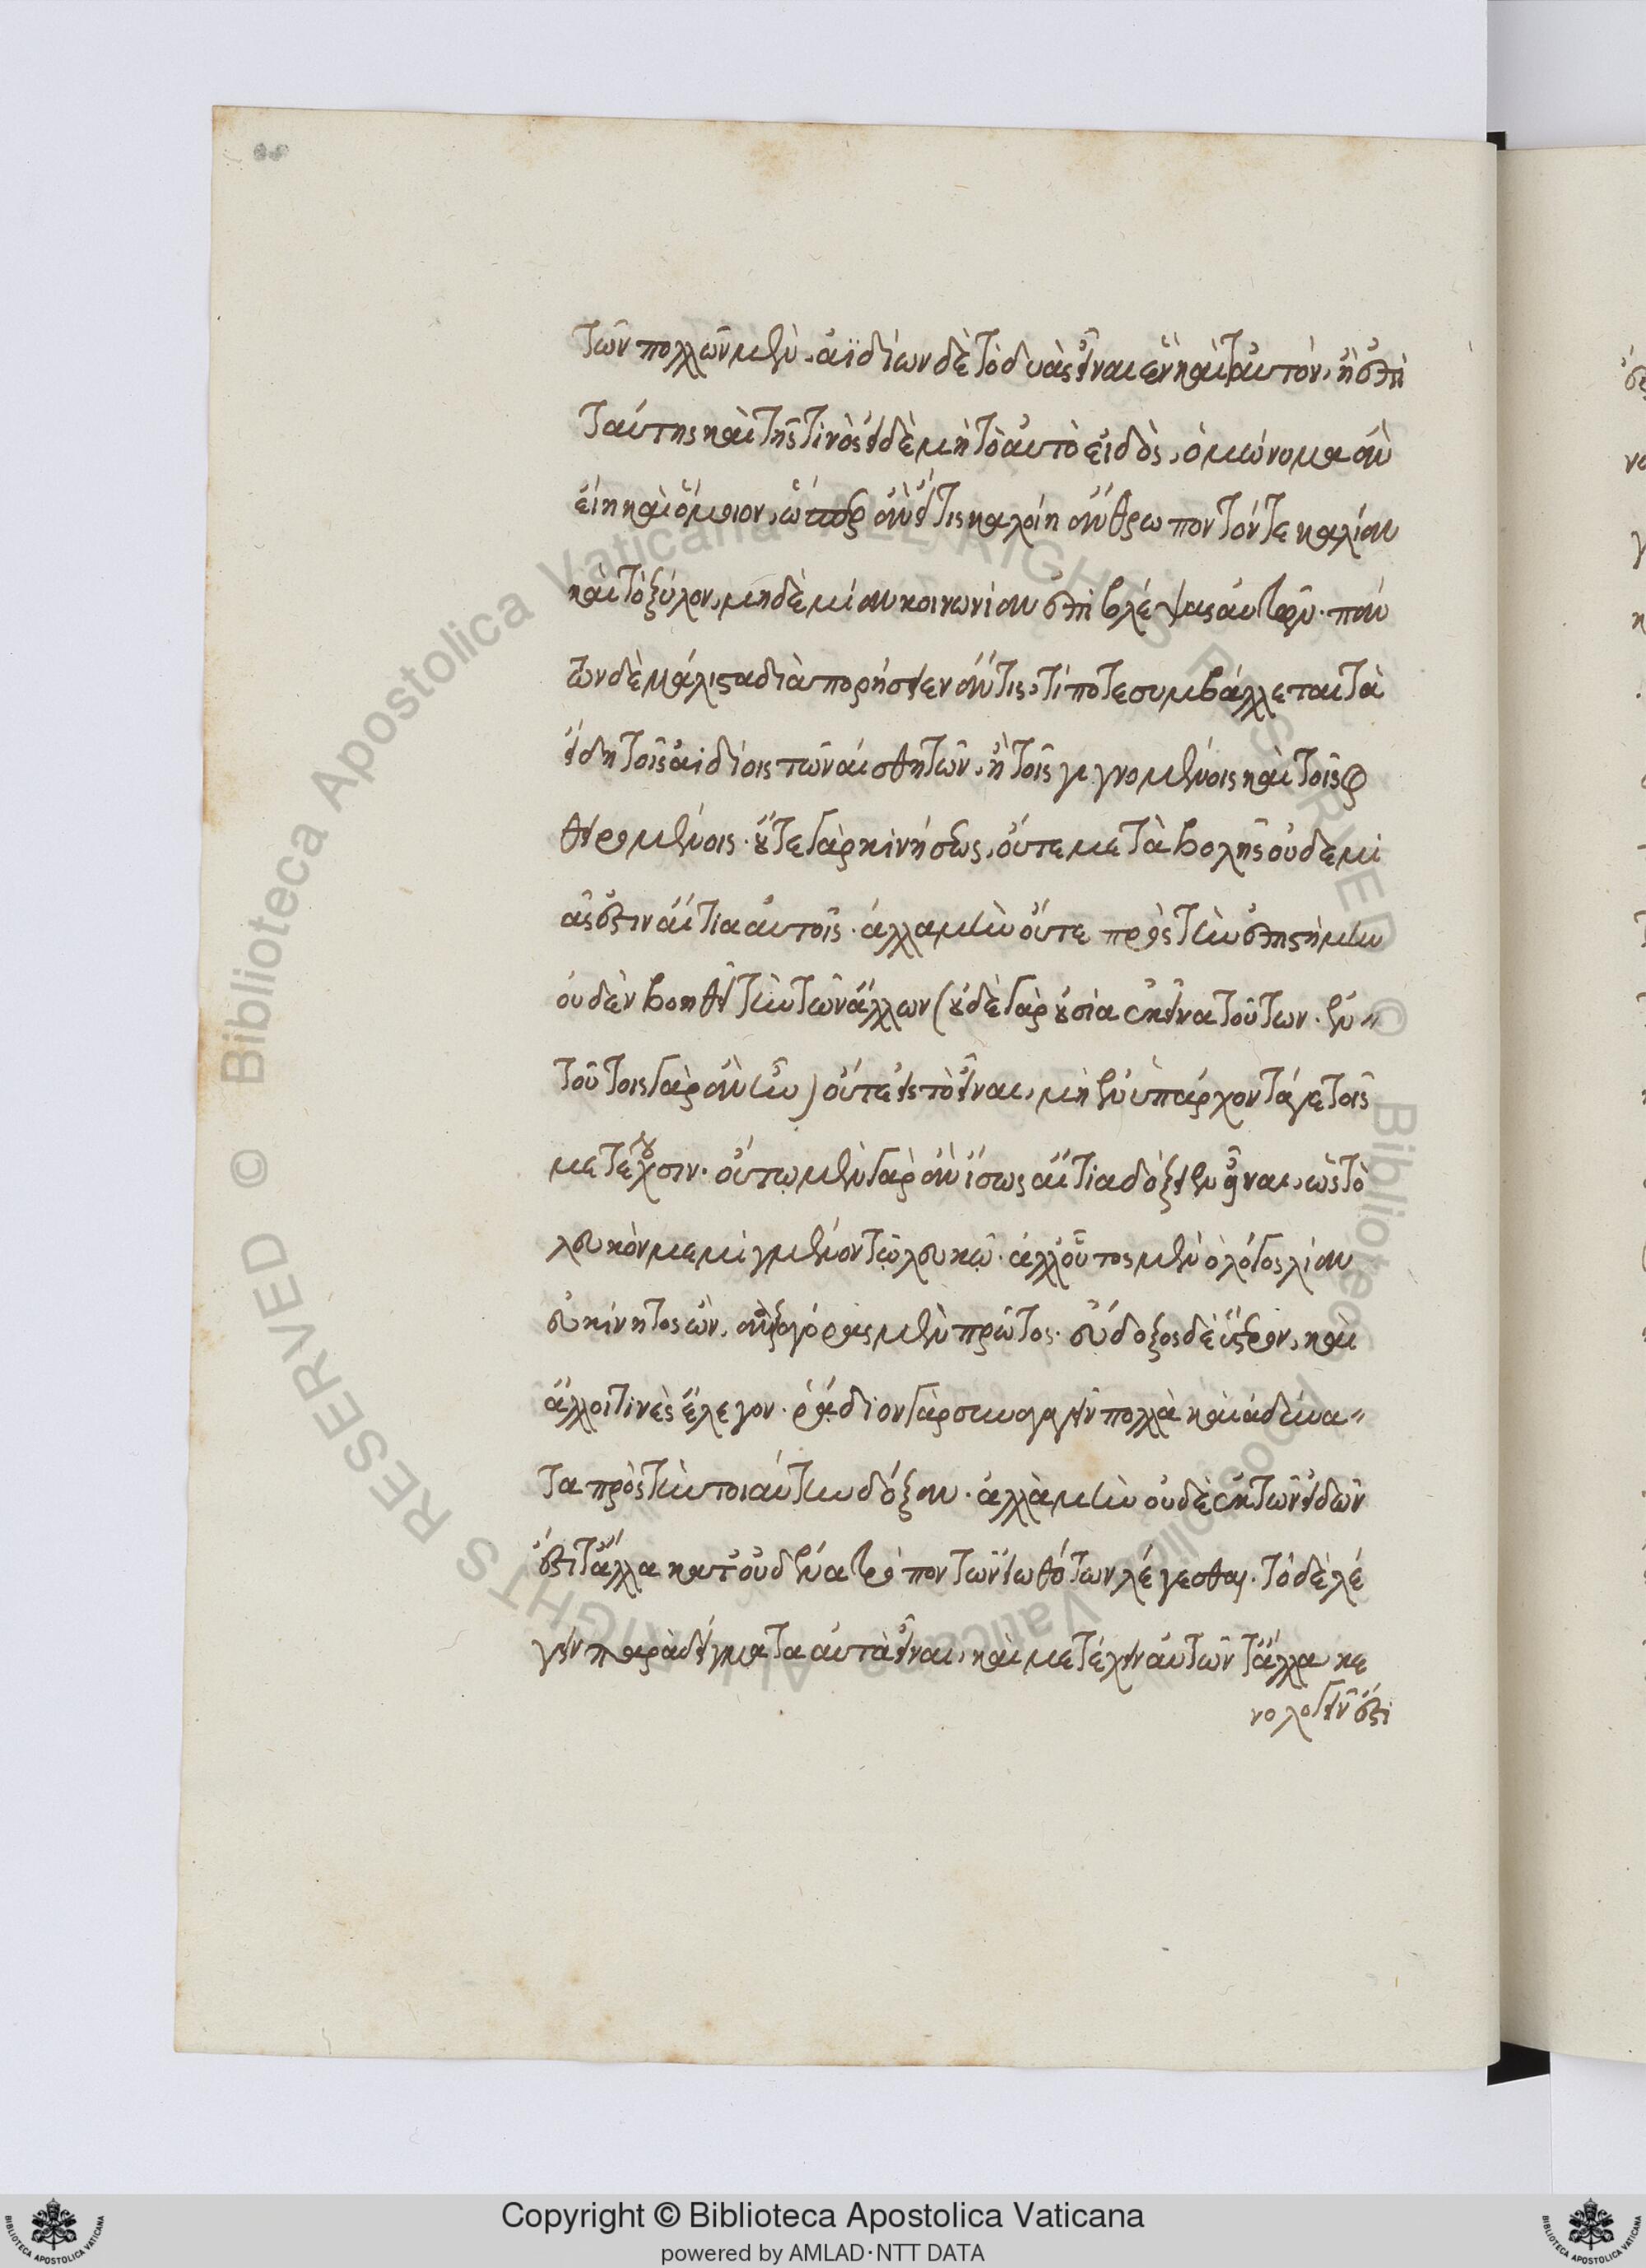 τῶν πολλῶν μὲν, ἀϊδίων δὲ τὸ δυὰς εἶναι ἓν καὶ ταυτὸν, ἢ ἐπὶ
ταύτης καὶ τῆς τινὸς εἰ δὲ μὴ τὸ αὐτὸ εἶδὸς, ὁμώνυμα ἂν
εἴη καὶ ὅμοιον, ὥσπερ ἂν εἴ τις καλοίη ἄνθρωπον τόν τε καλίαν
καὶ τὸ ξύλον, μηδὲ μίαν κοινωνίαν ἐπιβλέψας αὐτῶν. πάν
των δὲ μάλιστα διαπορήσειεν ἄν τις, τί ποτε συμβάλλεται τὰ
εἴδη τοῖς ἀϊδίοις τῶν αἰσθητῶν, ἢ τοῖς γιγνομένοις καὶ τοῖς φ
θειρομένοις. οὔτε γὰρ κινήσεως, οὔτε μεταβολῆς οὐδεμι
ᾶς ἐστιν αἴτια αὐτοῖς. ἀλλὰ μὴν οὔτε πρὸς τὴν ἐπιστήμην
οὐδὲν βοηθεῖ τὴν τῶν ἄλλων (οὐδὲ γὰρ οὐσία ἐκεῖνα τούτων. ἐν
τούτοις γὰρ ἂν ἦν) οὔτε εἰς τὸ εἶναι, μὴ ἐνυπάρχοντά γε τοῖς
μετέχουσιν. οὕτω μὲν γὰρ ἂν ἴσως αἴτια δόξειεν εἶναι, ὡς τὸ
λευκὸν μεμιγμένον τῷ λευκῷ. ἀλλ' οὗτος μὲν ὁ λόγος λίαν
εὐκίνητος ὤν, ἀναξαγόρας μὲν πρῶτος. εὔδοξος δὲ ὕστερον, καὶ
ἄλλοι τινὲς ἔλεγον. ῥάδιον γὰρ συναγαγεῖν πολλὰ καὶ ἀδύνα
τα πρὸς τὴν τοιαύτην δόξαν. ἀλλὰ μὴν οὐδὲ ἐκ τῶν εἰδῶν
ἐστὶ τἄλλα κατ' οὐδένα τρόπον τῶν εἰωθότων λέγεσθαι. τὸ δὲ λέ
γειν παραδείγματα αὐτὰ εἶναι, καὶ μετέχειν αὐτῶν τἄλλα κε
νολογεῖν ἐστὶ
Copyright © Biblioteca Apostolica Vaticana
powered by AMLAD·NTT DATA